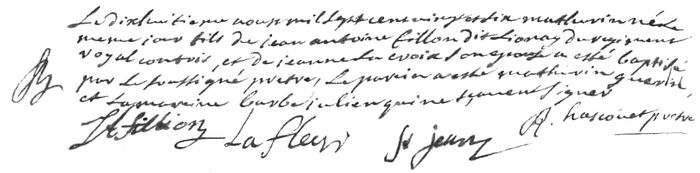 Le dixhuitieme aoust mil sept cent vingt et six mathurin né le
meme jour fils de jean antoine fillon dit Lionay du regiment
royal contois, et de jeanne La croix son epouse a esté baptisé
par le soussigné pretre, Le parein a esté mathurin
et La mareine barbe julien qui ne scavent signer
fillion La fleur St jean hascouet pretre